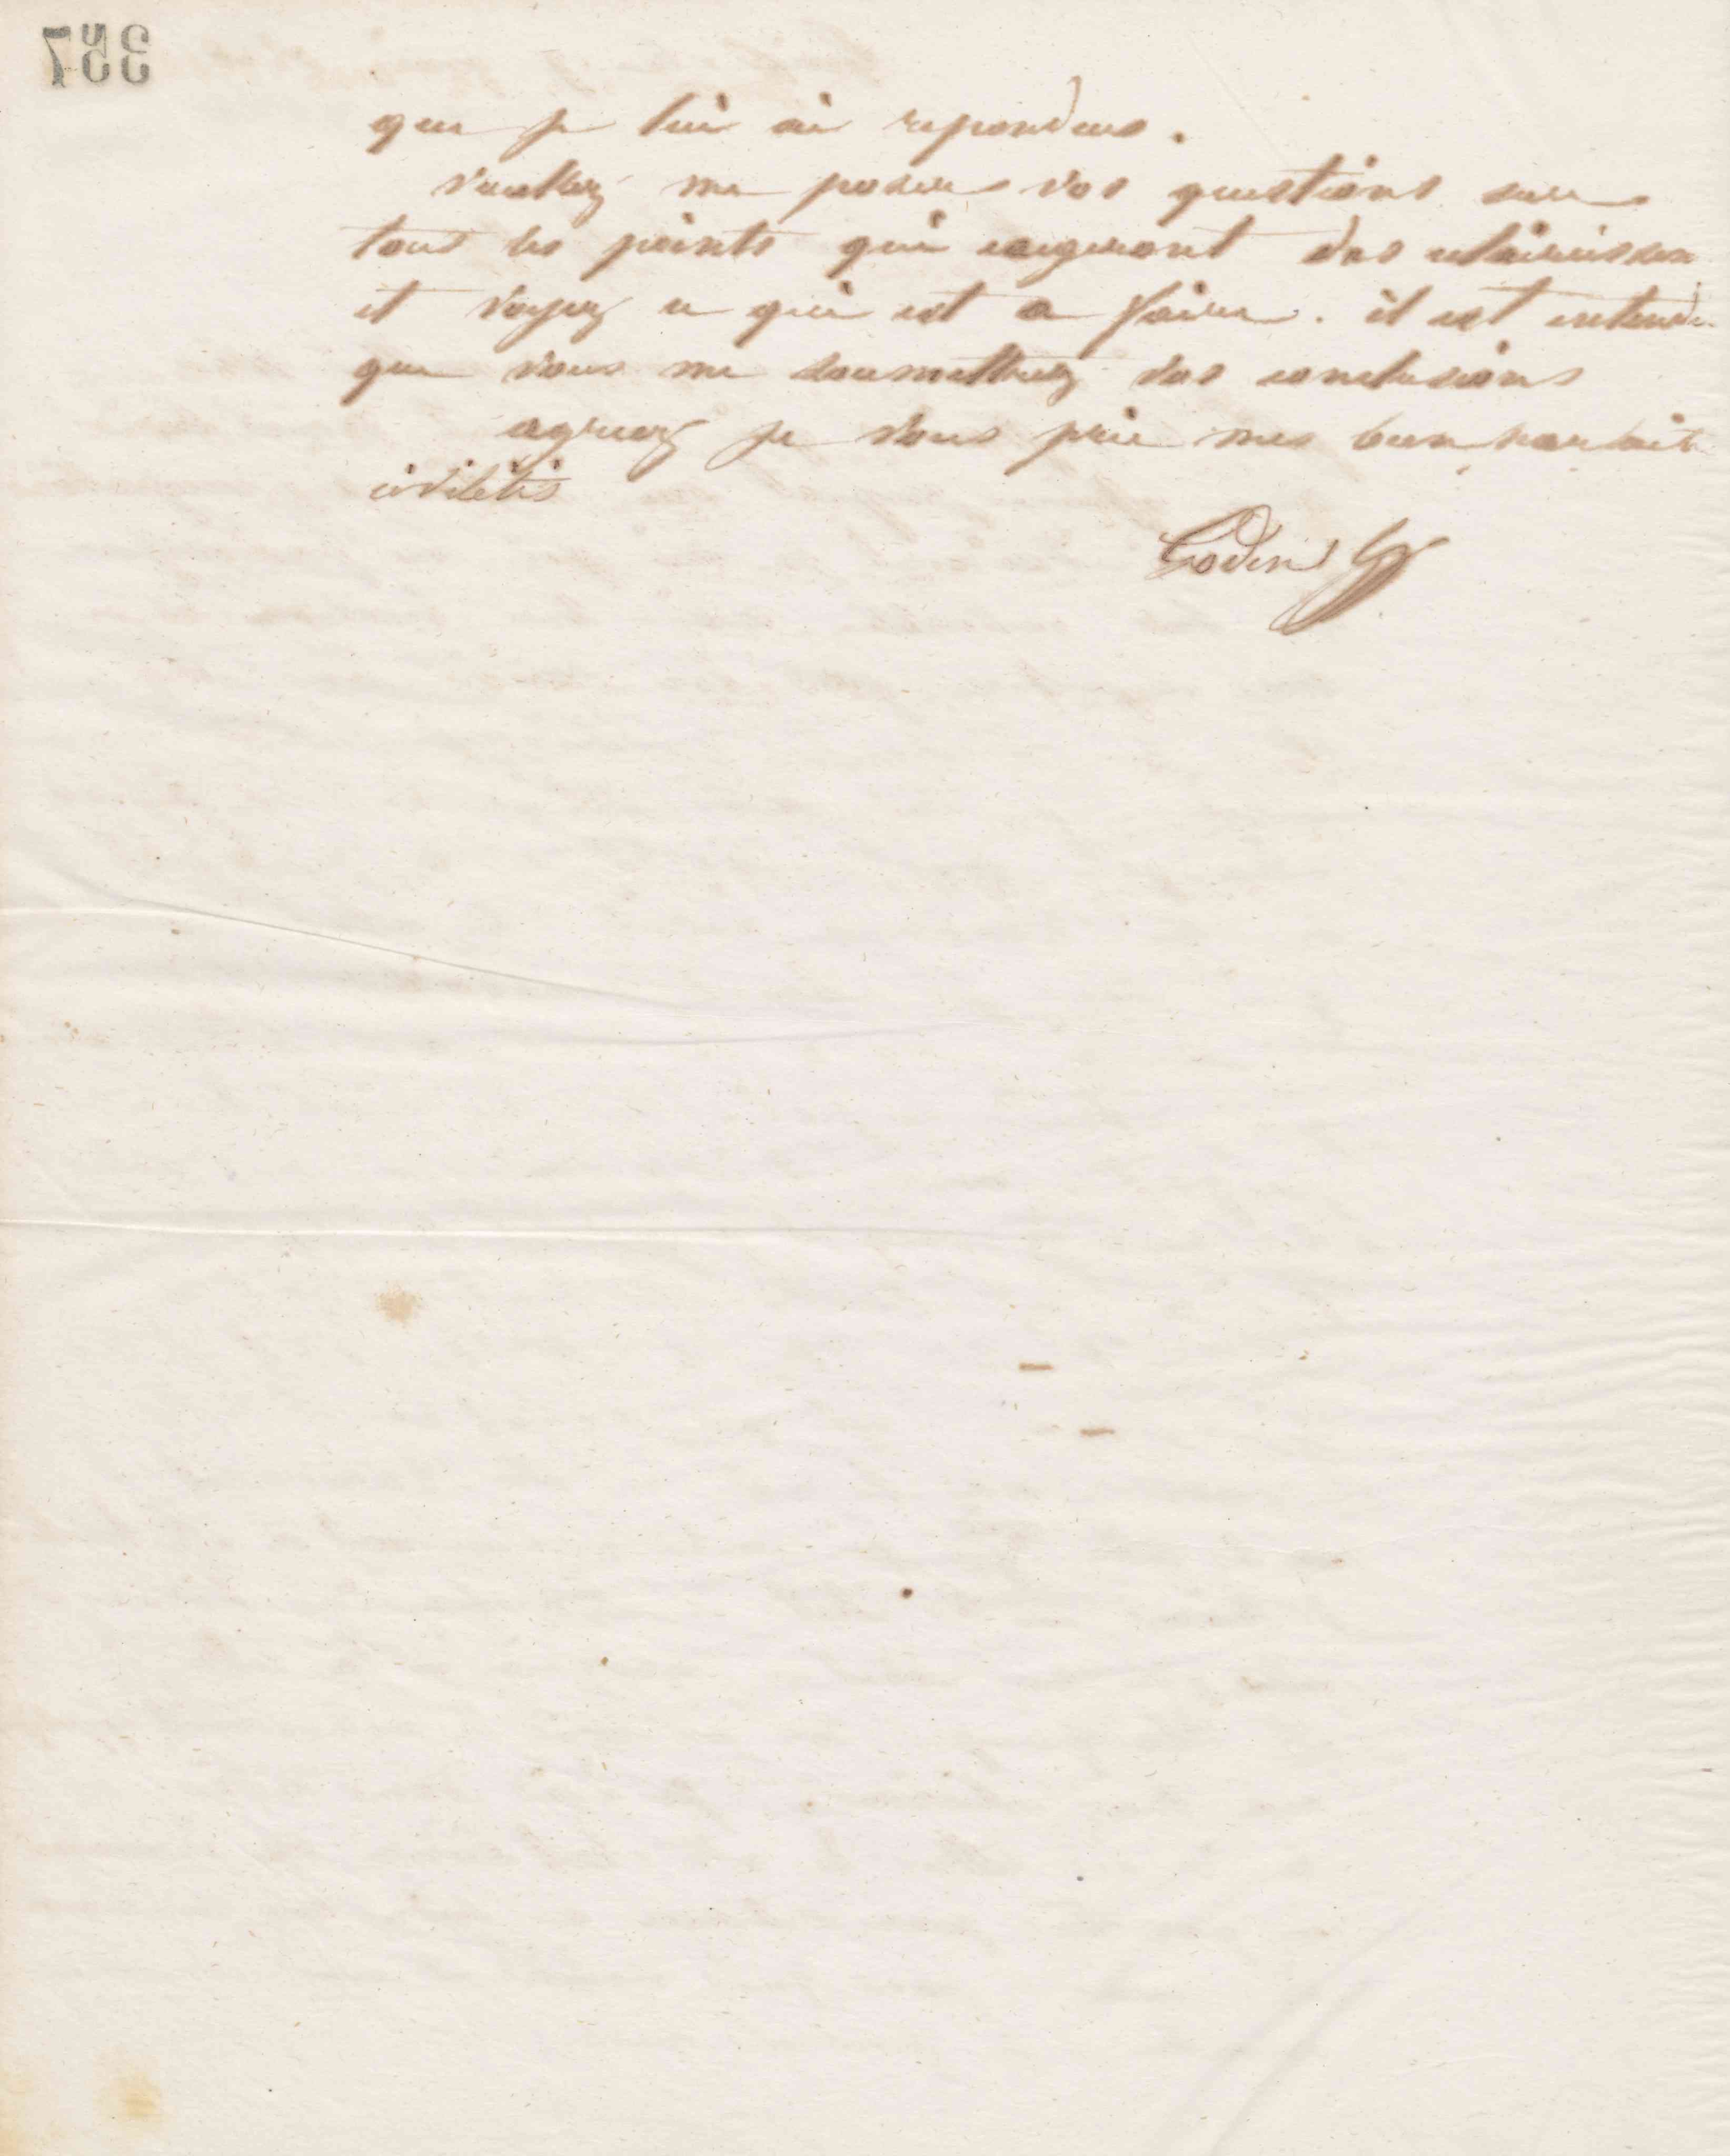 357
que je lui ai repondus.
veuillez me poser vos questions sur
tous les points qui exigeront des eclaircissem
et voyez ce qui est a faire. il est entendu
que vous me soumettrez vos conclusions
agreez je vous prie mes bien parfaite
civilités
Godin